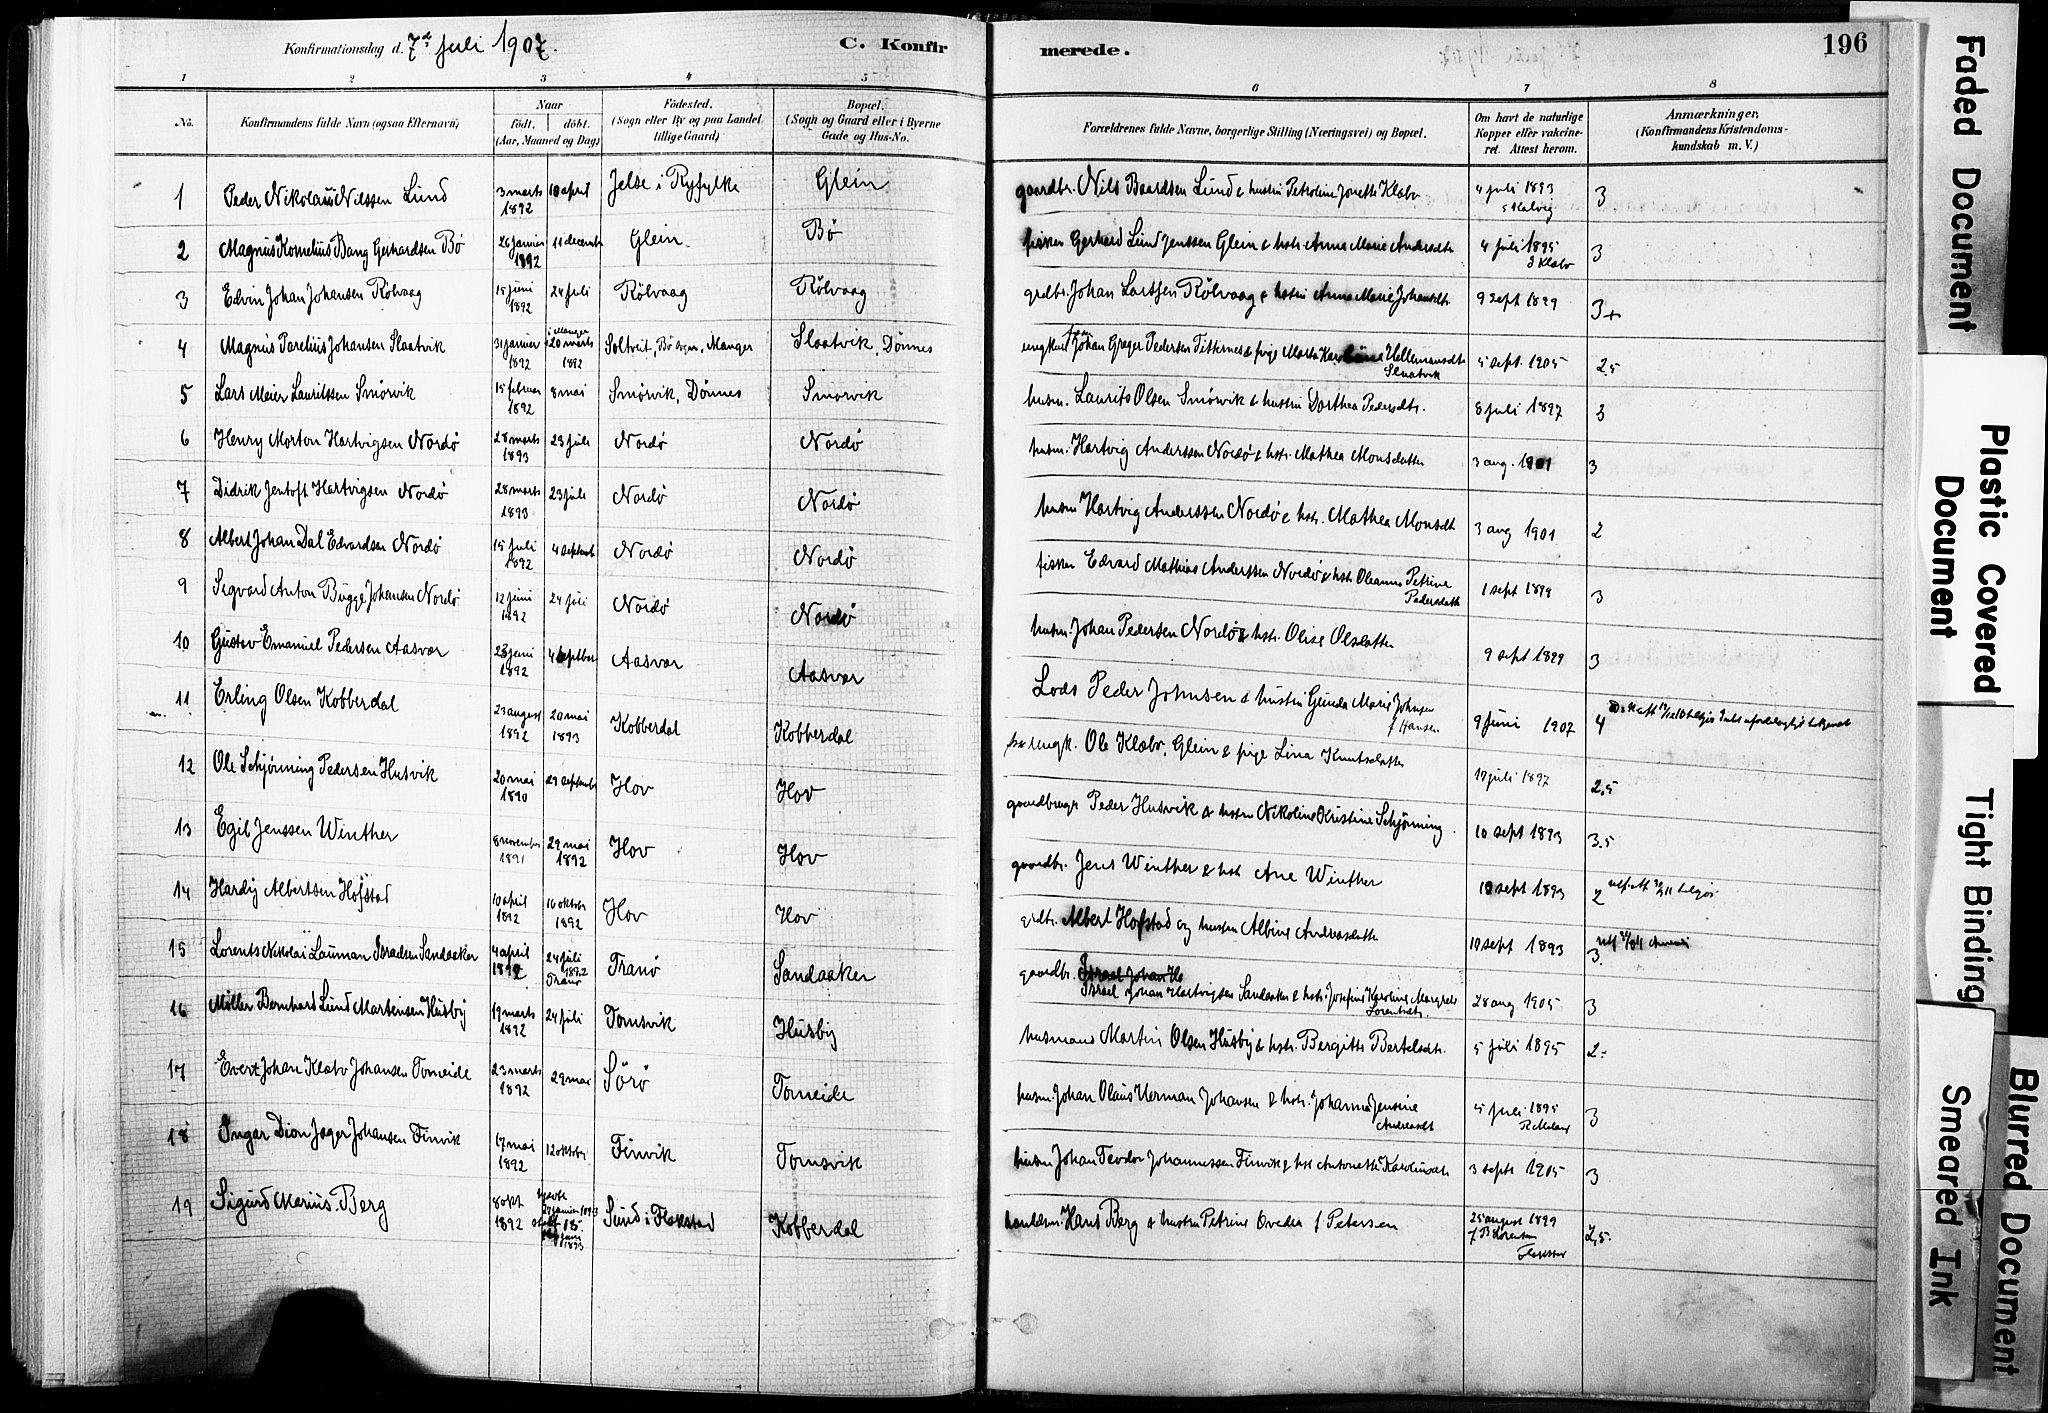 Konfirmationsdag d. 7de juli 1907.
C. Konfirmerede.
196
1 2 3 4 5 6 7 8
No. Konfirmandens fulde Navn (ogsaa Efternavn) Naar født. døbt. (Aar, Maaned og Dag) Födested. (Sogn eller By og paa Landet tillige Gaard) Bopæl. (Sogn og Gaard eller i Byerne Gade og Hus-No. Forældrenes fulde Navne, borgerlige Stilling (Næringsvei) og Bopæl. Om havt de naturlige Kopper eller vakcineret. Attest herom. Anmærkninger, (Konfirmandens Kristendomskundskab m. V.)
1 Peder Nikolaus Nilssen Lund 3 marts 1892 10 april Jelse i Ryfylke Glein gaardbr. Nils Baardsen Lund & hustru Petroline Jonette Klæbo 4 juli 1893 3
2 Magnus Kornelius Bang Gerhardsen Bø 26 januar 1892 11 decemb Glein Bø fisker Gerhard Lund Jenssen Glein & hstr. Anna Marie Andersdtr 4 juli 1895 J Klæbo 3
3 Edvin Johan Johansen Rölvaag 15 juni 1892 24 juli Rölvaag Rölvaag grdbr. Johan Larssen Rölvaag & hstru Anna Marie Johansdtr. 9 sept 1899 3+
4 Magnus Parelius Johansen Slaatvik 31 januar 1892 i Manger 20 marts 1892 Soltveit, Bø sogn, Manger Slaatvik, Dönnes ungkarl Johan Grøger Pedersen & pige Marta Slaatvik 5 sept. 1905 2.5
5 Lars Meier Lauritssen Smörvik 15 februar 1892 8 mai Smörvik, Dönnes Smörvik husm. Laurits Olsen Smörvik & hustru Dorthea Pedersdtr. 8 juli 1897 3
6 Henry Morton Hartvigsen Nordø 28 marts 1893 23 juli Nordø Nordø husm. Hartvig Anderssen Nordø & hstr. Mathea Monsdatter 3 aug. 1901 3
7 Didrik Jentoft Hartvigsen Nordø 28 marts 1893 23 juli Nordø Nordø husm Hartvig Anderssen Nordø & hstr. Mathea Monsdt 3 aug 1901 2
8 Albert Johan Dal Edvardsen Nordø 15 juli 1892 4 septemb Nordø Nordø fisker Edvard Mathias Anderssen Nordø & hstr. Oleanna Petrine Pedersdatt 1 sept 1899 3
9 Segvard Anton Bugge Johansen Nordø 12 juni 1892 24 juli Nordø Nordø husm. Johan Pedersen Nordø & hstr. Olise Olsdatter 9 sept 1899 3
10 Gustav Emanuel Pedersen Aasvær 23 juni 1892 4 septber Aasvær Aasvær Lods Peder Johnsen & hustru Gunda Marie Johnsen f Hansen 9 juni 1907 4
11 Erling Olsen Kobberdal 23 august 1892 20 mai 1893 Kobberdal Kobberdal ungk. Ole Klæbo, Glein & pige Lina Knutsdatter 17 juli 1897 2,5
12 Ole Schjønning Pedersen Husvik 20 mai 1890 29 septemb Hov Hov gaardbrugr Peder Husvik & hstru Nikoline Kristine Schjønning 10 sept 1893 3.5
13 Egil Jenssen Winther 8 november 1891 29 mai 1892 Hov Hov gaardbr. Jens Winther & hstr Ane Winther 10 sept 1893 2
14 Hardy Albertsen Hofstad 10 april 1892 16 oktober 1892 Hov Hov grdbr. Albert Hofstad og hustru Albine Andreasdatter 10 sept 1893 3.
15 Lorents Nikolai Lauman Israelsen Sandaaker 4 april 1892 24 juli 1892 Tranø Tranø Sandaaker gaardbr. Israel Johan Ha Israel Johan Hartvigsen Sandaaker & hstr. Josefine Karoline Margrete Lorentsdtr. 28 aug 1905 3
16 Møller Bernhard Lund Martensen Husby 19 marts 1892 24 juli Tomsvik Husby husmand Martin Olsen Husby & hstr. Bergitte Bertelsdtr. 5 juli 1895 2-
17 Evert Johan Klæbo Johansen Tomeide 23 marts 1892 29 mai Sörø Tomeide husm. Johan Olaus Herman Johansen & hstr. Johanna Jensine Andreasdt 5 juli 1895 3
18 Ingar Dion Jager Johansen Finvik 17 mai 1892 12 oktober Finvik Tomsvik husm Johan Teodor Johannessen Finvik & hst Antonette Karolinsdt. 3 sept 1905 3
19 Sigurd Marius Berg 8 okt 1892 18 juni 1893 Sund i Flakstad Kobberdal handelsm. Hans Berg & hustru Petrine Ovedia f Petersen 25 august 1899 2,5.
Faded Document
Plastic Covered Document
Tight Binding
Blurred Document
Smeared Ink